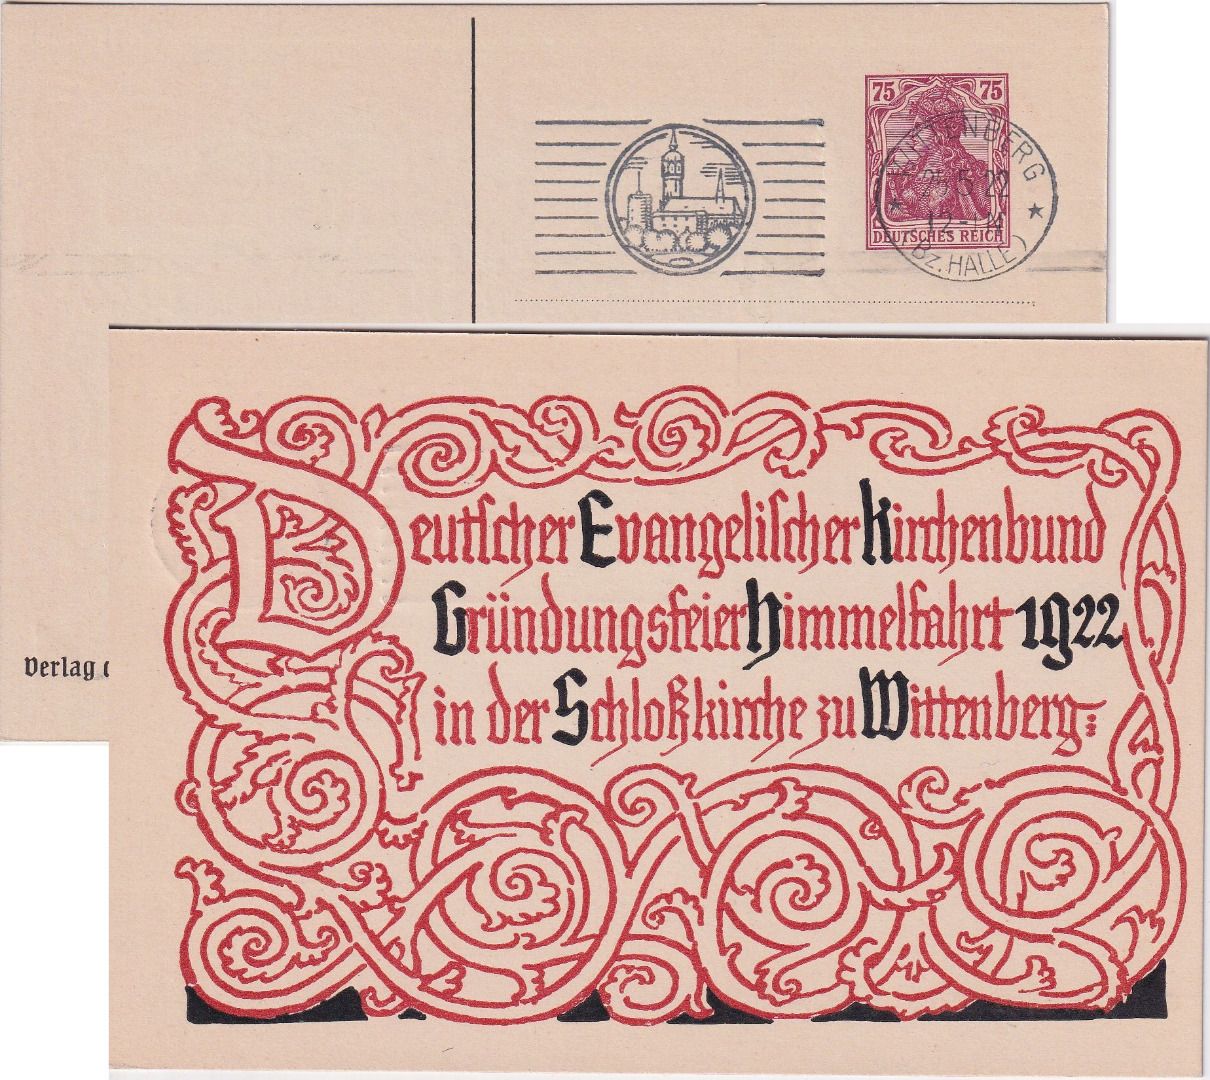 75 75
DEUTSCHES REICH
WITTENBERG
5 22
12-1 N
(Bz. HALLE)
Verlag
Deutscher Evangelischer Kirchenbund
Gründungsfeier Himmelfahrt 1922
in der Schloßkirche zu Wittenberg: